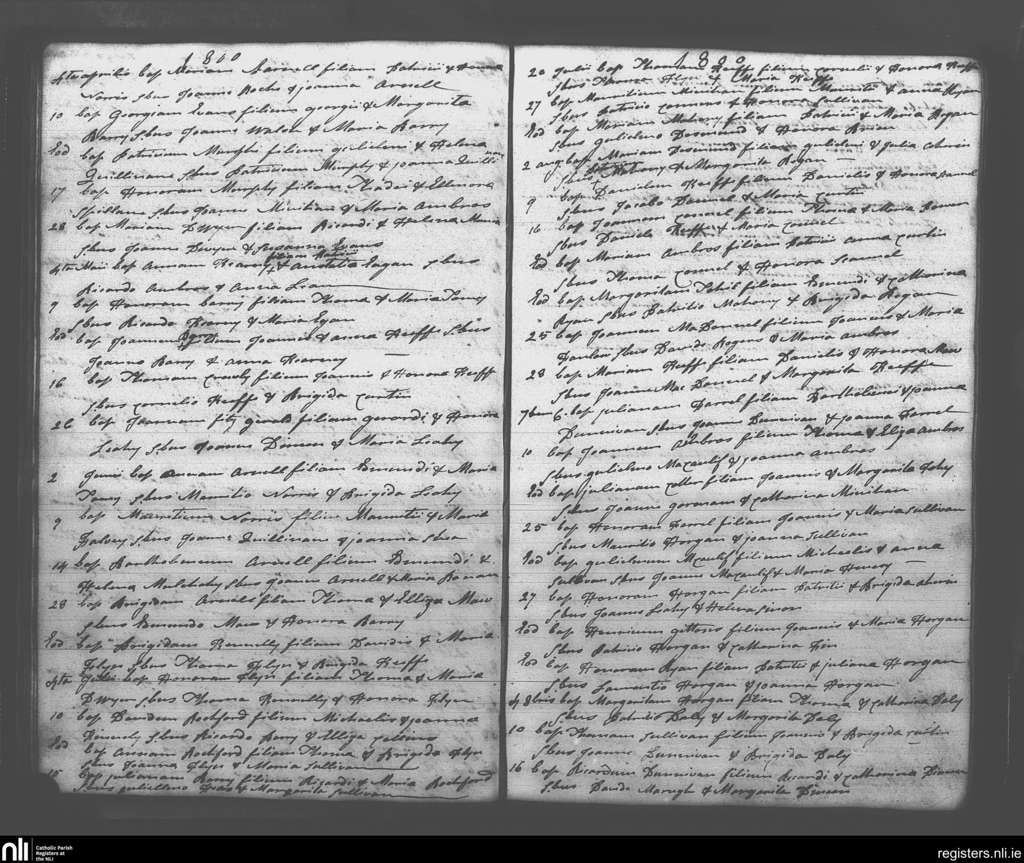 1800
4to aprilis bap Mariam Arnell filiam Patricii & Honora
Norris Sbus Joannes Roche & Joanna Arnell
10 bap Georgium Evans filium georgii & Margarita
Barry Sbus Joanne Walsh & Maria Barry
Eod bap Patricium Murphy filium gulielmi & Helena
Quillivane Sbus Patricium Murphy & Joanna
17 bap Honoram Murphy filiam Thadei & Ellenora
Spillane Sbus Joanne Minihan & Maria Ambros
28 bap Mariam Dwyer filiam Ricardi & Helena
Sbus Joanne Dwyer & Susanna Evans
filiam Patricii
4to Maii bap Annam Kearny & Anstatia Eagan Sbus
Ricardo Ambros & Anna
9 bap Honoram filiam Thoma & Maria
Sbus Ricardo Kearny & Maria Egan
Eod bap Joannem filium Joannis & anna Keiffe Sbus
Joanne Barry & anna Kearney
16 bap Thomam Crowly filium Joannis & Honora Keiff
Sbus Cornelio Keiff & Brigida Curtin
26 bap Joannem fitz gerald filium gerardi & Honora
Leahy Sbus Joanne Dineen & Maria Leahy
2 Junii bap Annam Arnell filiam Edmundi & Maria
Sbus Mauritio Norris & Brigida Leahy
9 bap Mauritium Norris filium Mauritii & Maria
Sbus Joanne Quillivan & Joanna Shea
14 bap Bartholomeum Arnell filium Edmundi &
Helena Mulchahy Sbus Joanne Arnell & Maria
28 bap Brigidam Arnell filiam Thoma & Elliza Maw
Sbus Edmundo Maw & Honora Barry
Eod bap Brigidam filiam Davidis & Maria
Flyn Sbus Thoma Flyn & Brigida Keiff
4to Julii bap Honoram Flyn filiam Thoma & Maria
Dwyer Sbus Thoma & Honora Flyn
10 bap Davidem Rochford filium Michaelis & Joanna
Sbus Ricardo Barry & Elliza
Eod bap Annam Rochford filiam Thoma & Brigida Flyn
Sbus Joanne Flyn & Maria Sullivan
15 bap Julianam Barry filiam Ricardi & Maria Rochford
Sbus gulielmo & Margarita Sullivan
1800
20 Julii bap Thomam Keiff filium Cornelii & Honora Keiff
Sbus Thoma Flyn & Maria Keiffe
27 bap Mauritium Minihan filium Mauritii & anna Ryan
Sbus Patricio Connors & Honora Sullivan
Eod bap Mariam Mahony filiam Patricii & Maria Regan
Sbus gulielmo Desmond & Honora
2 aug bap Mariam Desmond filiam gulielmi & Julia
Sbus Mahony & Margarita Regan
9 bap Danielem Keiff filium Danielis & Honora
Sbus Jacobo Daniel & Maria Curtin
16 bap Joannem Connel filium Thoma & Maria
Sbus Daniele Keiffe & Maria Connel
Eod bap Mariam Ambros filiam Patricii anna Curtin
Sbus Thoma Connel & Honora Scannel
Eod bap Margaritam filiam Edmundi & Catharina
Ryan Sbus Patritio Mahony & Brigida Regan
25 bap Joannem MacDonnel filium Joannis & Maria
Sbus Davide Rogers & Maria Ambros
28 bap Mariam Keiff filiam Danielis & Honora Maw
Sbus Joanne MacDonnel & Margarita Keiffe
7ber 6 bap Julianam Farrel filiam Bartholomei & Joanna
Dunnivan Sbus Joanne Dunnivan & Joanna Farrel
10 bap Joannem Ambros filium Thoma & Eliza Ambros
Sbus gulielmo Macaulif & Joanna Ambros
Eod bap Julianam filiam Joannis & Margarita Fahy
Sbus Joanne gorman & Catharina Minihan
25 bap Honoram Farrel filiam Joannis & Maria Sullivan
Sbus Mauritio Horgan & Joanna Sullivan
Eod bap gulielmum Macaulif filium Michaelis & anna
Sullivan Sbus Joanne Macaulif & Maria
27 bap Honoram Horgan filiam Patritii & Brigida
Sbus Joanne Leahy & Helena
Eod bap Henricum filium Joannis & Maria Horgan
Sbus Patricio Horgan & Catharina
Eod bap Honoram Ryan filiam Patritii & Juliana Horgan
Sbus Laurentio Horgan & Joanna Horgan
4 8bris bap Margaritam Horgan filiam Thoma & Catharina Daly
Sbus Patritio Daly & Margarita Daly
10 bap Thomam Sullivan filium Joannis & Brigida
Sbus Joanne Dunnivan & Brigida Daly
16 bap Ricardum Dunnivan filium Ricardi & Catharina Dineen
Sbus Davide & Margarita Dineen
nli
Catholic Parish
Registers at
the NLI
registers.nli.ie